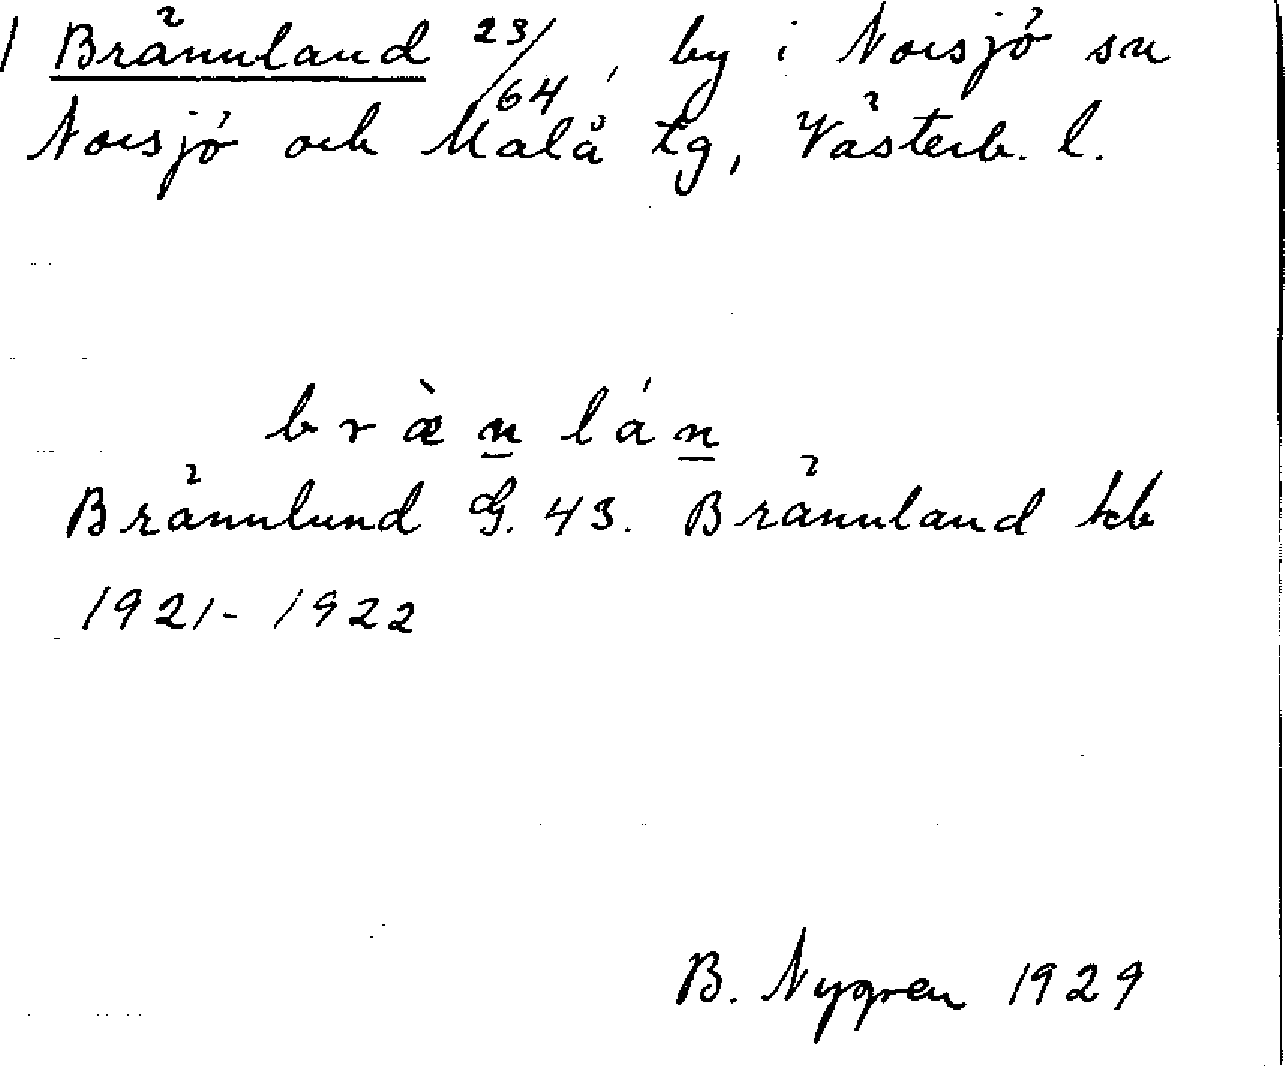 1 Brännland 23/64, by i Norsjö sn
Norsjö och Malå tg, Västerb. l.
br æ̀ n̲ l á n̲
Brännlund G. 43. Brännland kb
1921-1922
B. Nygren 1929